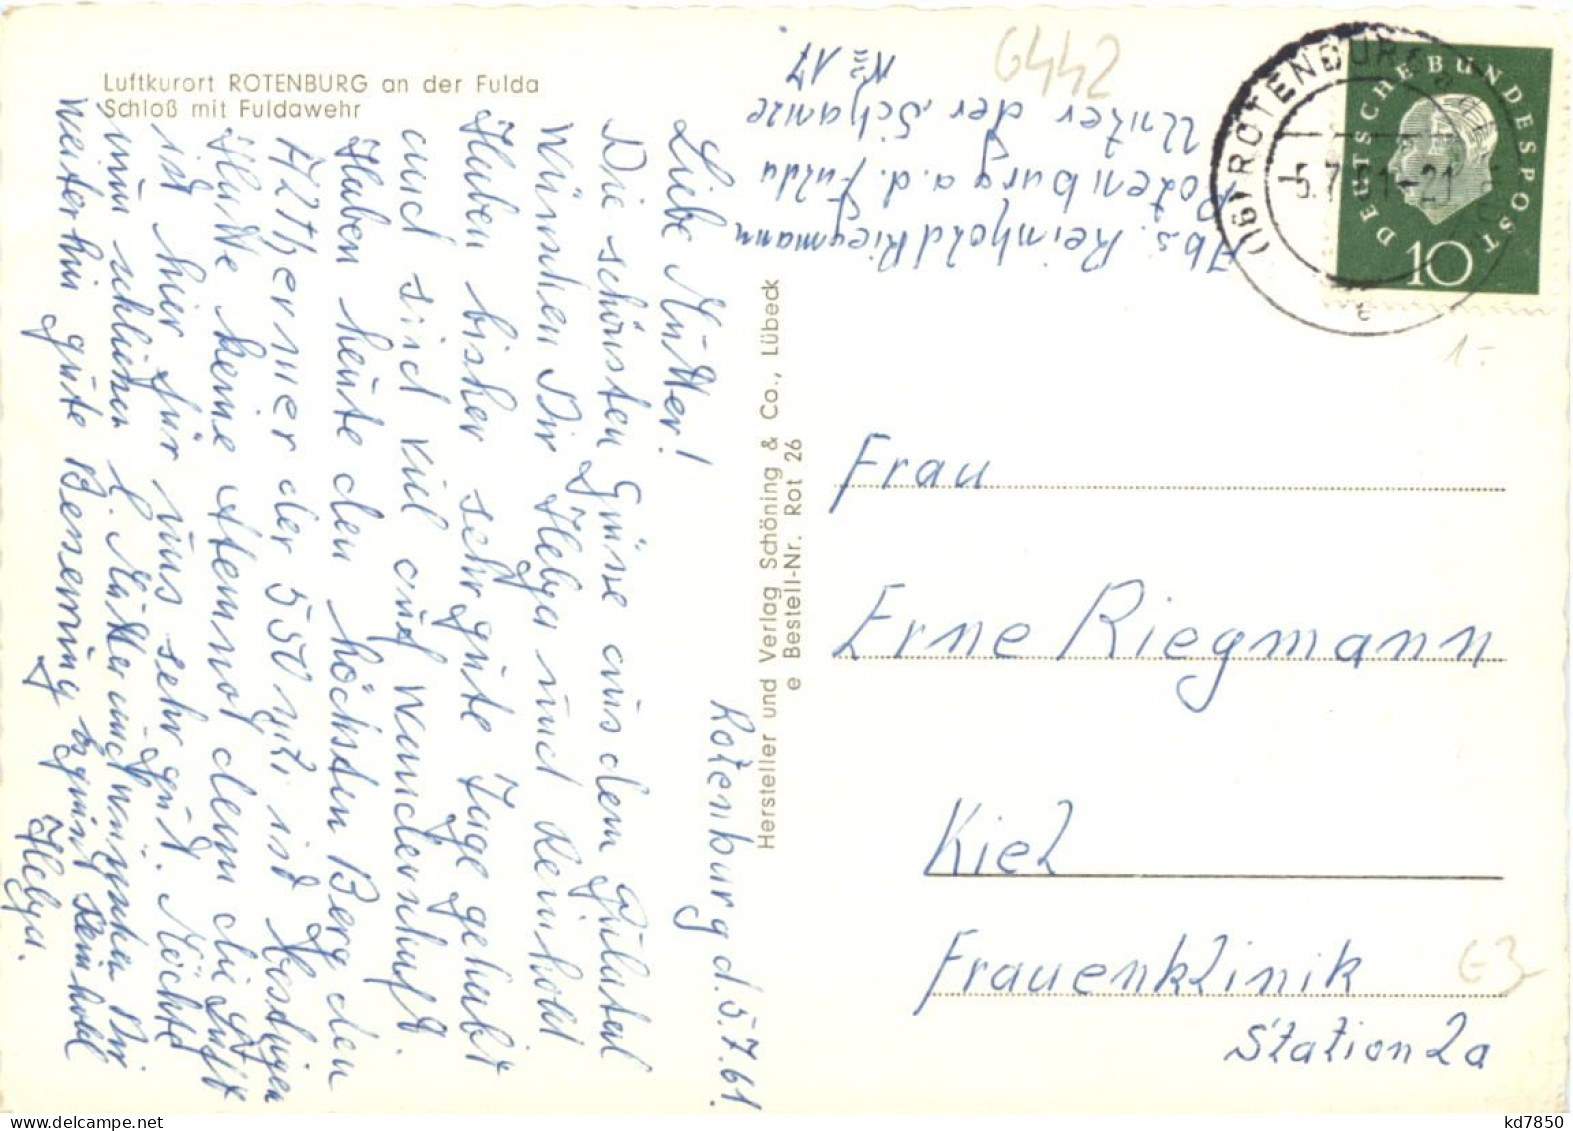 Luftkurort ROTENBURG an der Fulda
Schloß mit Fuldawehr
Rotenburg d. 5.7.61.
Liebe Mutter!
Die schönsten Grüsse aus dem Fuldatal
wünschen Dir Helga und Reinhold
Haben bisher sehr gute Tage gehabt
und sind viel auf Wanderschaft.
Haben heute den höchsten Berg den
der 550 mtr. ist bestiegen
Hatte keine Atemnot denn die Luft
ist hier für uns sehr gut. Möchte
nun schließen l. Mutter und wünschen Dir
weiterhin gute Besserung es grüsst Reinhold
Helga.
Abs. Reinhold Riegmann
Rotenburg a. d. Fulda
Unter der Schanze
№ 17
6442
Hersteller und Verlag Schöning & Co., Lübeck
e Bestell-Nr. Rot 26
(16) ROTENBURG
-5.7.61-21
e
DEUTSCHE BUNDESPOST
10
1.-
Frau
Erne Riegmann
Kiel
Frauenklinik
Station 2a
G3
kd7850